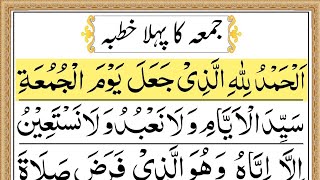 جمعہ کا پہلا خطبہ
اَلْحَمْدُ لِلّٰهِ الَّذِیْ جَعَلَ یَوْمَ الْجُمُعَةِ
سَیِّدَ الْاَیَّامِ وَلَا نَعْبُدُ وَلَا نَسْتَعِیْنُ
اِلَّا اِیَّاهُ وَهُوَ الَّذِیْ فَرَضَ صَلَاةَ